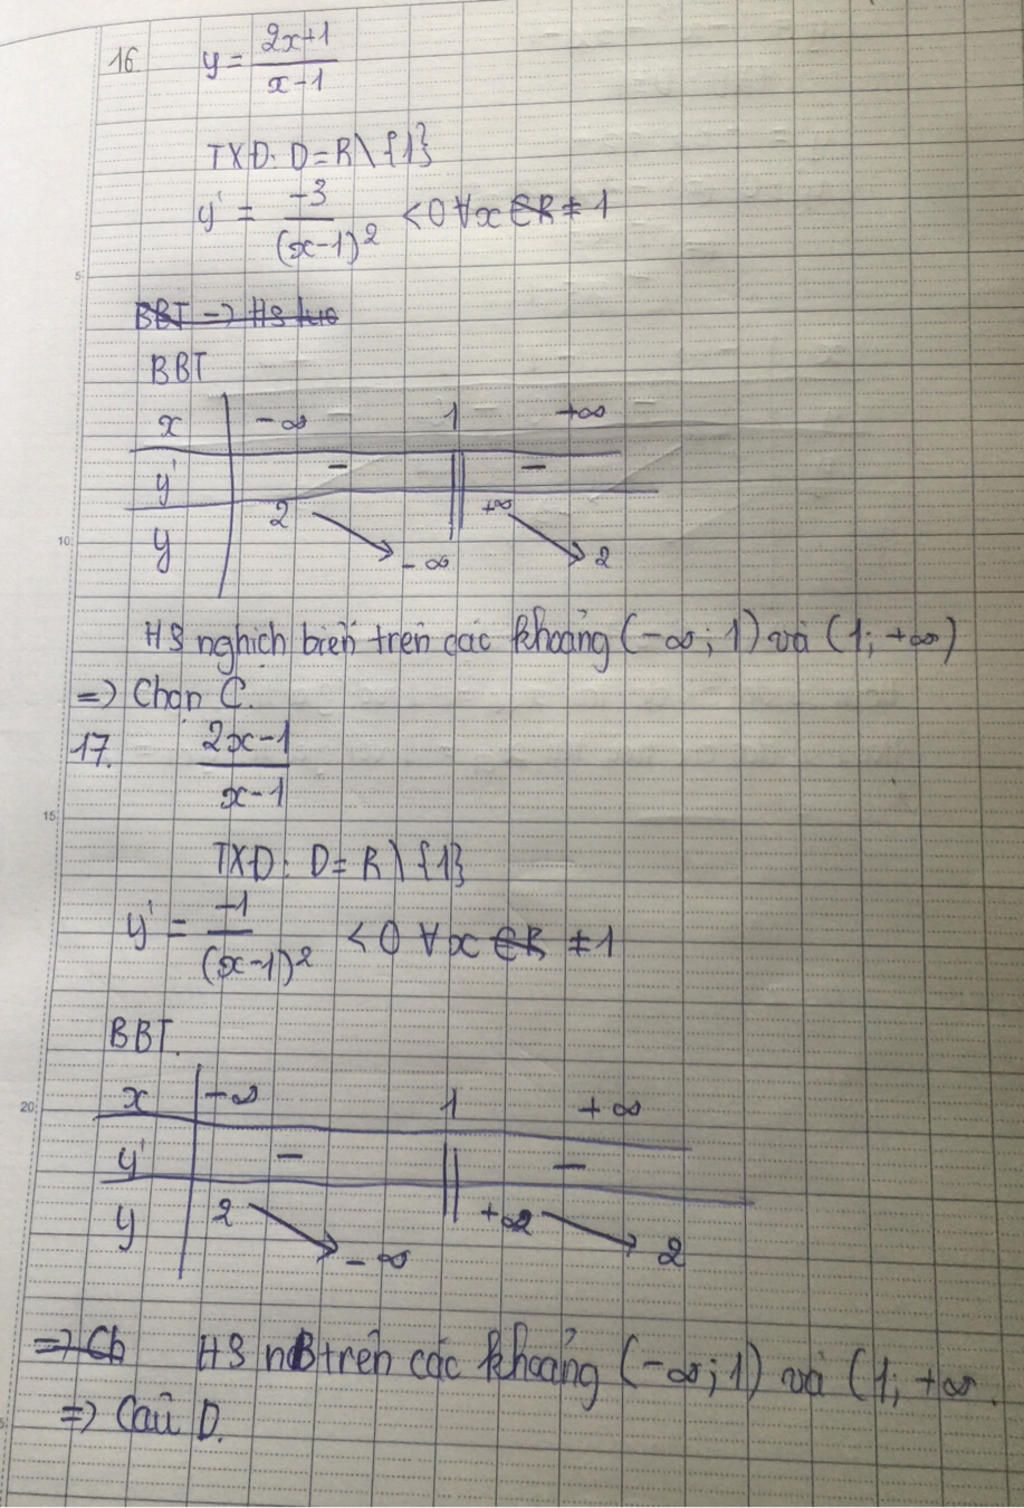 16. y = (2x+1)/(x-1)
TXĐ: D = R \ {1}
y' = -3/(x-1)² < 0 ∀x ∈ R ≠ 1
BBT => HS
BBT
x -∞ 1 +∞
y' - || -
y 2 ↘ -∞ || +∞ ↘ 2
HS nghịch biến trên các khoảng (-∞; 1) và (1; +∞)
=> Chọn C.
17. (2x-1)/(x-1)
TXĐ: D = R \ {1}
y' = -1/(x-1)² < 0 ∀x ∈ R ≠ 1
BBT.
x -∞ 1 +∞
y' - || -
y 2 ↘ -∞ || +∞ ↘ 2
=> Ch HS nB trên các khoảng (-∞; 1) và (1; +∞
=> Câu D.
5
10
15
20